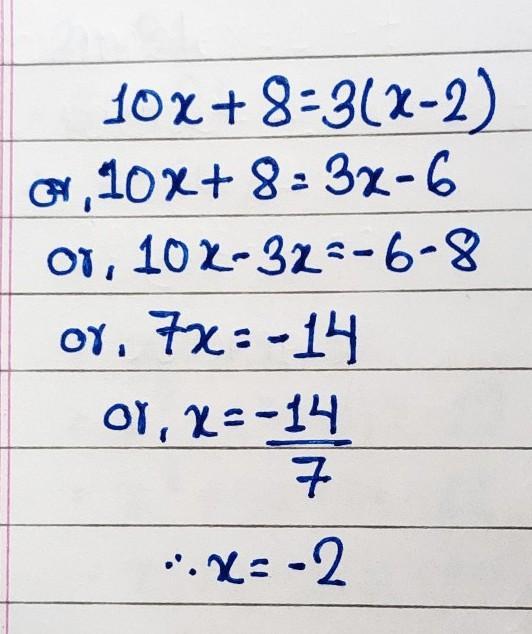 10x + 8 = 3(x - 2)
or, 10x + 8 = 3x - 6
or, 10x - 3x = -6 - 8
or, 7x = -14
or, x = -14
7
∴ x = -2